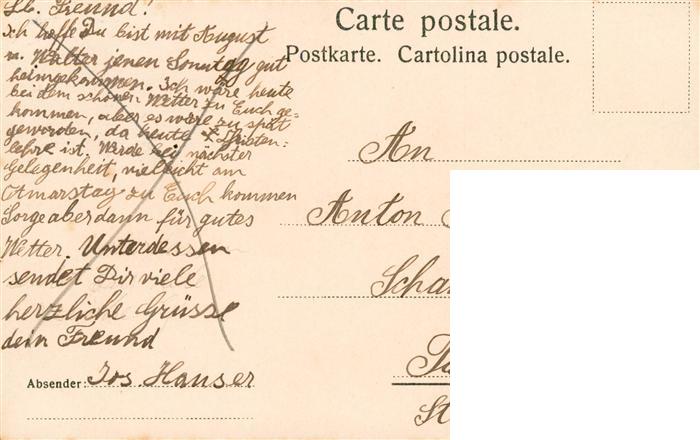 Lb. Freund!
Ich hoffe Du bist mit August
u. Walter jenen Sonntag gut
heimgekommen. Ich wäre heute
bei dem schönen Wetter zu Euch ge-
kommen, aber es wäre zu spät
geworden, da heute Christen-
lehre ist. Werde bei nächster
Gelegenheit, vielleicht am
Otmarstag zu Euch kommen
Sorge aber dann für gutes
Wetter. Unterdessen
sendet Dir viele
herzliche Grüsse
dein Freund
Absender: Jos. Hauser
Carte postale.
Postkarte. Cartolina postale.
An
Anton